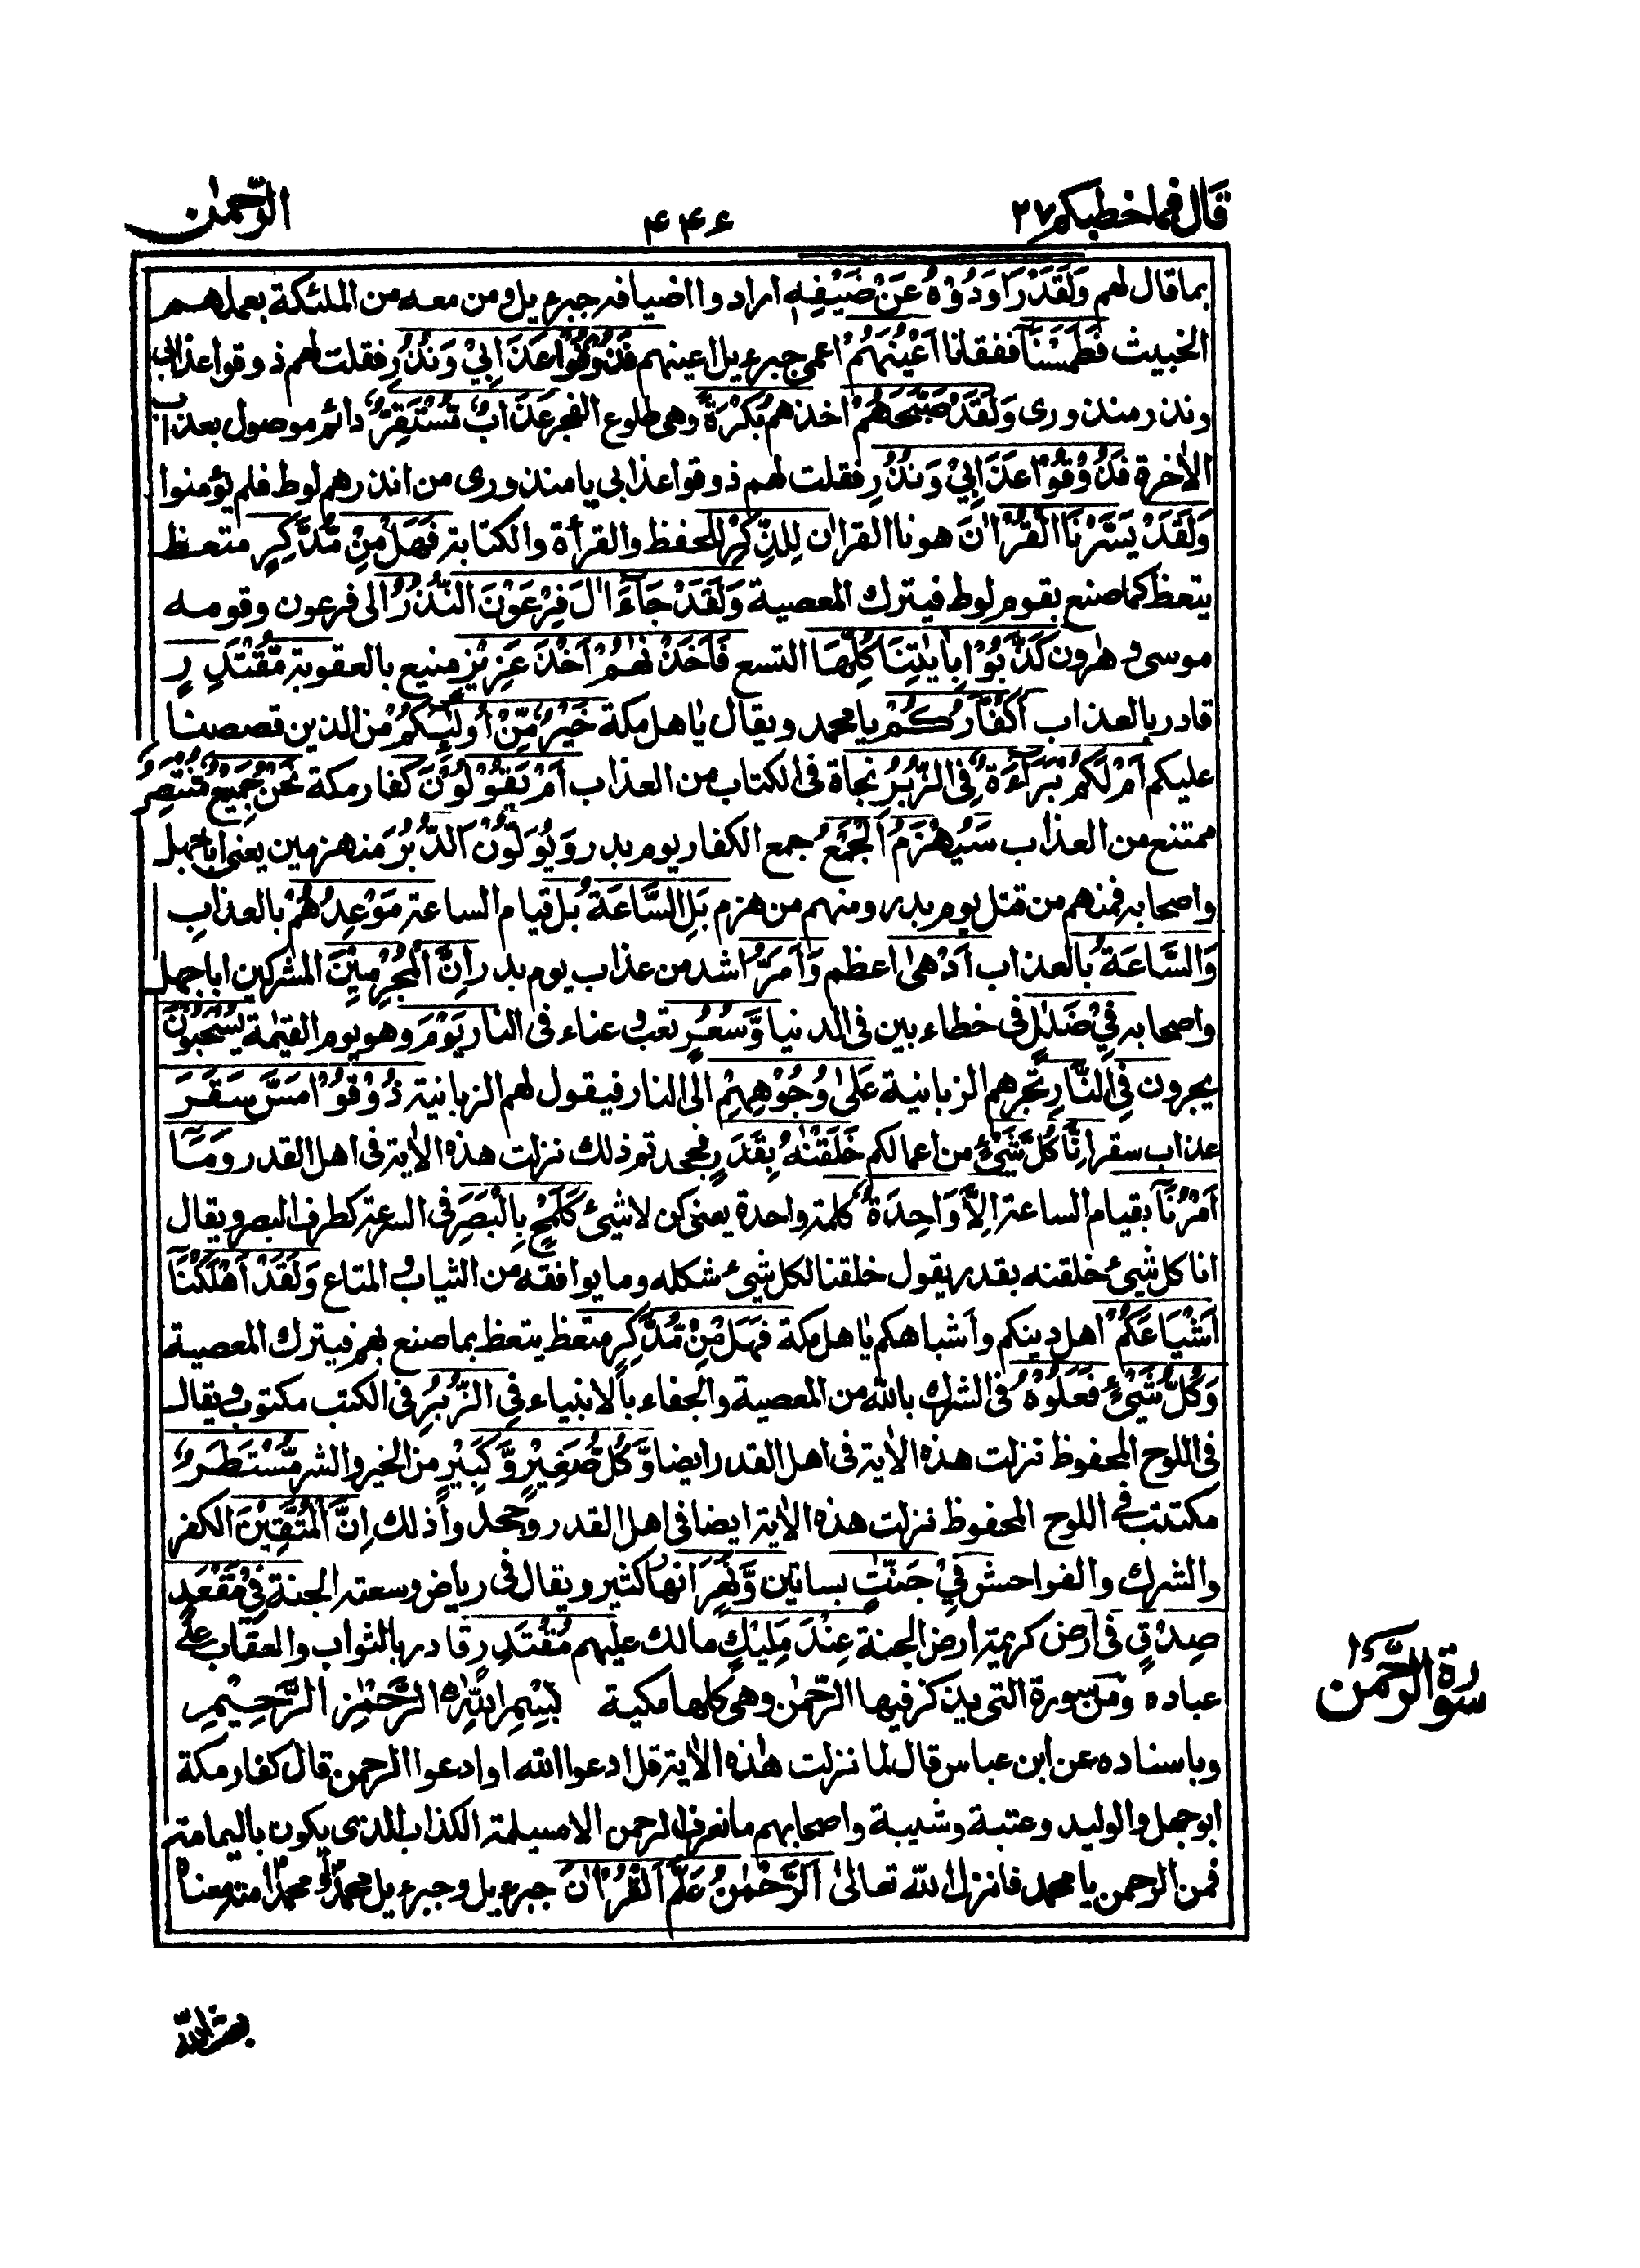 قال فما خطبكم ٢٧
٤٤٦
الرّحمٰن
بما قال لهم وَلَقَدْ رَاوَدُوْهُ عَنْ ضَيْفِهٖ ارادوا اضيافه جبرءيل ومن معه من الملئكة بعملهم
الخبيث فَطَمَسْنَآ ففقانا اَعْيُنَهُمْ اعمى جبرءيل اعينهم فَذُوْقُوْا عَذَابِيْ وَنُذُرِ فقلت لهم ذوقوا عذابى
ونذر منذورى وَلَقَدْ صَبَّحَهُمْ اخذهم بُكْرَةً وهى طلوع الفجر عَذَابٌ مُّسْتَقِرٌّ دائم موصول بعذاب
الاٰخرة فَذُوْقُوْا عَذَابِيْ وَنُذُرِ فقلت لهم ذوقوا عذابى يا منذورى من انذرهم لوط فلم يؤمنوا
وَلَقَدْ يَسَّرْنَا الْقُرْاٰنَ هونا القراٰن لِلذِّكْرِ للحفظ والقرأة والكتابة فَهَلْ مِنْ مُّدَّكِرٍ متعظ
يتعظ كما صنع بقوم لوط فيترك المعصية وَلَقَدْ جَآءَ اٰلَ فِرْعَوْنَ النُّذُرُ الى فرعون وقومه
موسى و هٰرون كَذَّبُوْا بِاٰيٰتِنَا كُلِّهَا التسع فَاَخَذْنٰهُمْ اَخْذَ عَزِيْزٍ منيع بالعقوبة مُّقْتَدِرٍ
قادر بالعذاب اَكُفَّارُكُمْ يا محمد ويقال يٰاهل مكة خَيْرٌ مِّنْ اُولٰٓئِكُمْ من الذين قصصنا
عليكم اَمْ لَكُمْ بَرَآءَةٌ فِى الزُّبُرِ نجاة فى الكتاب من العذاب اَمْ يَقُوْلُوْنَ كفار مكة نَحْنُ جَمِيْعٌ مُّنْتَصِرٌ
ممتنع من العذاب سَيُهْزَمُ الْجَمْعُ جمع الكفار يوم بدر وَيُوَلُّوْنَ الدُّبُرَ منهزمين يعنى ابا جهل
واصحابه فمنهم من قتل يوم بدر ومنهم من هزم بَلِ السَّاعَةُ بل قيام الساعة مَوْعِدُهُمْ بالعذاب
وَالسَّاعَةُ بالعذاب اَدْهٰى اعظم وَاَمَرُّ اشد من عذاب يوم بدر اِنَّ الْمُجْرِمِيْنَ المشركين ابا جهل
واصحابه فِيْ ضَلٰلٍ فى خطاء بين فى الدنيا وَّسُعُرٍ تعب و عناء فى النار يَوْمَ وهو يوم القيٰمة يُسْحَبُوْنَ
يجرون فِى النَّارِ تجرهم الزبانية عَلٰى وُجُوْهِهِمْ الى النار فيقول لهم الزبانية ذُوْقُوْا مَسَّ سَقَرَ
عذاب سقر اِنَّا كُلَّ شَيْءٍ من اعمالكم خَلَقْنٰهُ بِقَدَرٍ فجحدتم ذلك نزلت هذه الاٰية فى اهل القدر وَمَآ
اَمْرُنَآ بقيام الساعة اِلَّا وَاحِدَةٌ كلمة واحدة يعنى كن لاشئ كَلَمْحٍۭ بِالْبَصَرِ فى السرعة كطرف البصر ويقال
انا كل شئ خلقنه بقدر يقول خلقنا لكل شئ شكله وما يوافقه من الثياب و المتاع وَلَقَدْ اَهْلَكْنَآ
اَشْيَاعَكُمْ اهل دينكم واشباهكم يٰاهل مكة فَهَلْ مِنْ مُّدَّكِرٍ متعظ يتعظ بما صنع بهم فيترك المعصية
وَكُلُّ شَيْءٍ فَعَلُوْهُ فى الشرك بالله من المعصية والجفاء بالانبياء فِى الزُّبُرِ فى الكتب مكتوب و يقال
فى اللوح المحفوظ نزلت هذه الاٰية فى اهل القدر ايضا وَّكُلُّ صَغِيْرٍ وَّكَبِيْرٍ من الخير والشر مُّسْتَطَرٌ
مكتتب فى اللوح المحفوظ نزلت هذه الاٰية ايضا فى اهل القدر وجحدوا ذلك اِنَّ الْمُتَّقِيْنَ الكفر
والشرك والفواحش فِيْ جَنّٰتٍ بساتين وَّنَهَرٍ انهار كثير ويقال فى رياض وسعة الجنة فِيْ مَقْعَدِ
صِدْقٍ فى ارض كريمة ارض الجنة عِنْدَ مَلِيْكٍ مالك عليهم مُّقْتَدِرٍ قادر بالثواب والعقاب على
عباده ومن سورة التى يذكر فيها الرّحمٰن وهى كلها مكية بِسْمِ اللهِ الرَّحْمٰنِ الرَّحِيْمِ
وباسناده عن ابن عباس قال لما نزلت هٰذه الاٰية قل ادعوا الله او ادعوا الرحمن قال كفار مكة
ابوجهل والوليد وعتبة وشيبة واصحابهم ما نعرف الرحمن الا مسيلمة الكذاب الذى يكون باليمامة
فمن الرحمن يا محمد فانزل الله تعالىٰ اَلرَّحْمٰنُ عَلَّمَ الْقُرْاٰنَ جبرءيل وجبرءيل محمدًا و محمدًا امته معناه
سورة الرّحمٰن